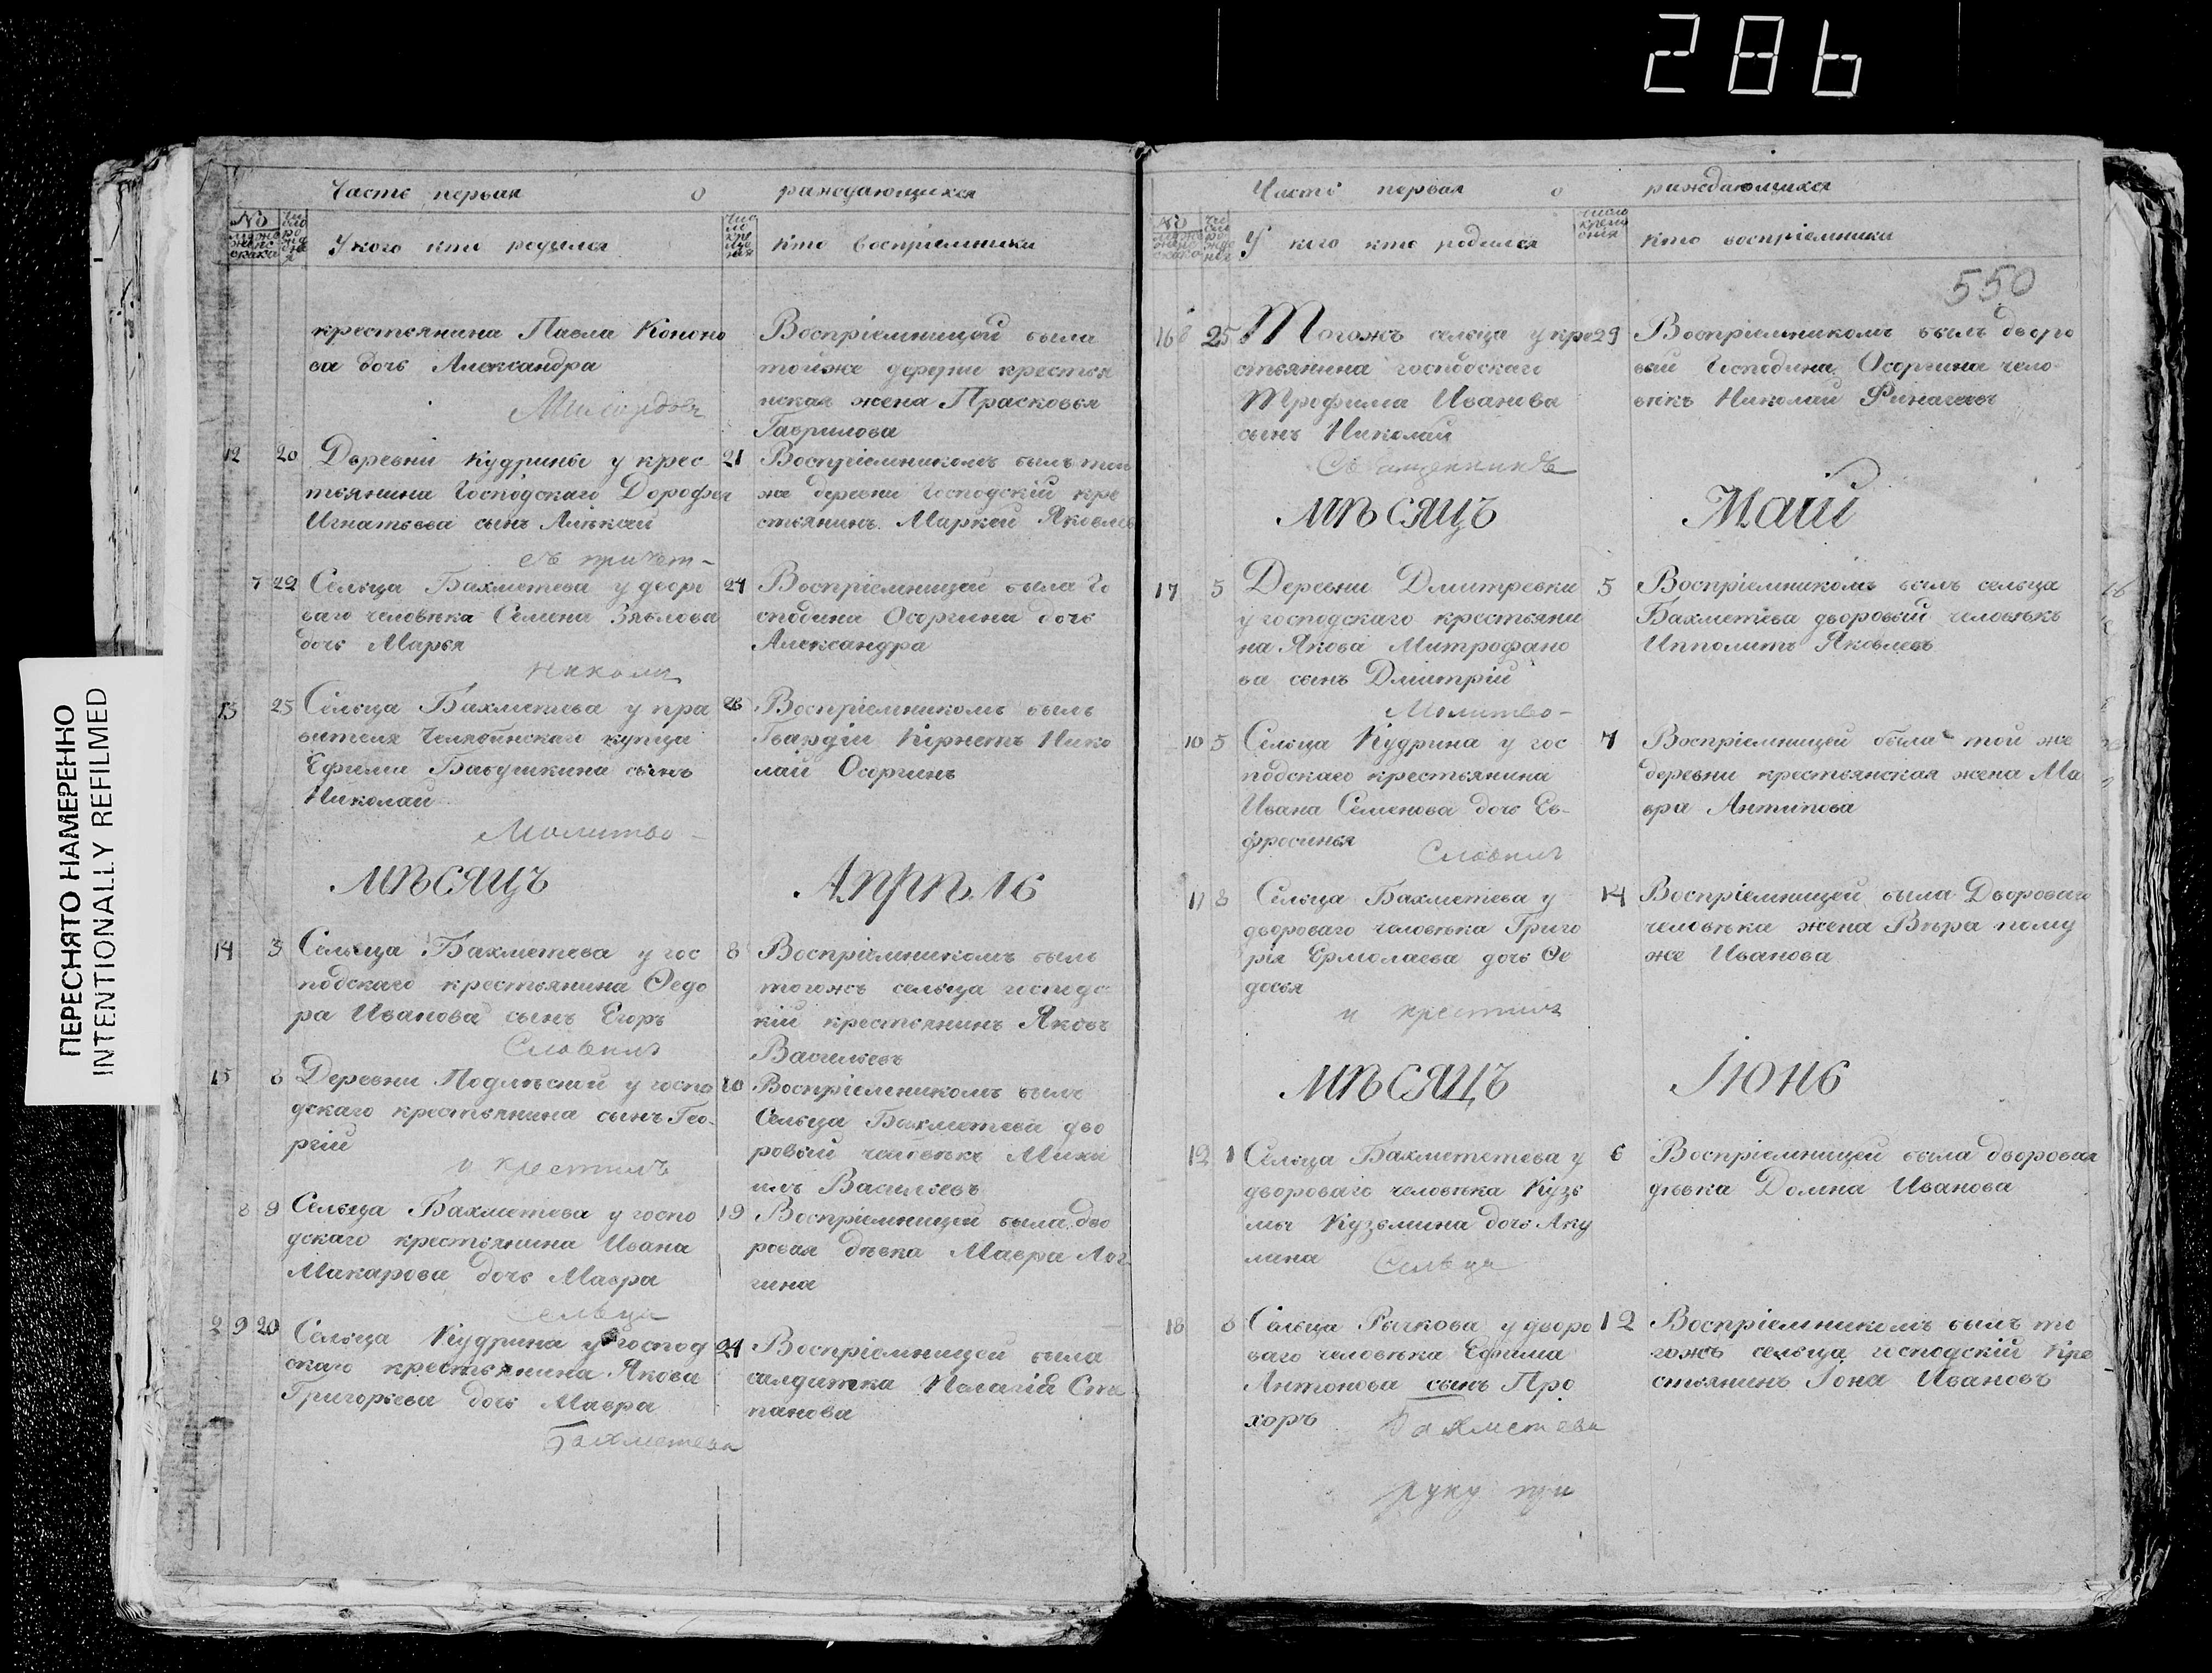 286
ПЕРЕСНЯТО НАМЕРЕННО
INTENTIONALLY REFILMED
Часть первая о раждающихся
№ У кого кто родился Кто восприемники
крестьянина Павла Кононо
ва дочь Александра
Восприемницей была
тойже деревни крестья
нская жена Прасковья
Гаврилова
12 20 Деревни Кудрины у крес
тьянина Господскаго Дорофея
Игнатьева сынъ Алексей
21 Восприемникомъ былъ той
же деревни Господскій кре
стьянинъ Маркей Яковлев
съ причет-
7 22 Сельца Бахметева у дворо
ваго человѣка Семена Зявлова
дочь Марья
24 Восприемницей была Го
сподина Осоргина дочь
Александра
Николи
13 25 Сельца Бахметева у пра
вителя Челябинскаи купца
Ефима Бабушкина сынъ
Николай
26 Восприемникомъ былъ
Гвардіи Корнетъ Нико
лай Осоргинъ
Молитво-
мѣсяцъ Апрѣль
14 3 Сельца Бахметева у гос
подскаго крестьянина Ѳедо
ра Иванова сынъ Егоръ
8 Восприемникомъ былъ
тогожъ сельца господс
кій крестьянинъ Яковъ
Васильевъ
Словилъ
15 6 Деревни Подлѣсной у госпо
дскаго крестьянина сынъ Гео
ргій
10 Восприемникомъ былъ
Сельца Бахметева дво
ровый человѣкъ Михаи
илъ Васильевъ
и крестилъ
8 9 Сельца Бахметева у госпо
дскаго крестьянина Ивана
Макарова дочь Мавра
19 Восприемницей была дво
ровая дѣвка Мавра Лог
гина
Сельца
9 20 Сельца Кудрина у господ
скаго крестьянина Якова
Григорьева дочь Мавра
24 Восприемницей была
салдатка Палагія Сте
панова
Бахметева
Часть первая о раждающихся
№ У кого кто родился число крещенія Кто восприемники
550
16 25 Тогожъ сельца у кре
стьянина господскаго
Трофима Иванова
сынъ Николай
29 Восприемникомъ былъ дворо
вый Господина Осоргина чело
вѣкъ Николай Финагеевъ
Священникъ
мѣсяцъ Май
17 5 Деревни Дмитревки
у господскаго крестьяни
на Якова Митрофано
ва сынъ Дмитрій
5 Восприемникомъ былъ сельца
Бахметева дворовый человѣкъ
Ипполитъ Яковлевъ
Молитво-
10 5 Сельца Кудрина у гос
подскаго крестьянина
Ивана Семенова дочь Ев-
фросинья
7 Восприемницей была той же
деревни крестьянская жена Ма
вра Антипова
Словилъ
11 8 Сельца Бахметева у
двороваго человѣка Григо
рія Ермолаева дочь Ѳе
досья
14 Восприемницей была Двороваго
человѣка жена Вѣра тому
же Иванова
и крестилъ
мѣсяцъ Іюнь
12 1 Сельца Бахмететева у
двороваго человѣка Кузь
мы Кузьмина дочь Аку
лина
6 Восприемницей была дворовая
дѣвка Домна Иванова
Сельца
18 8 Сельца Рычкова у дворо
ваго человѣка Ефима
Антонова сынъ Про
хоръ
12 Восприемникомъ былъ то
гожъ сельца господскій кре
стьянинъ Іона Ивановъ
Бахметева
руку при